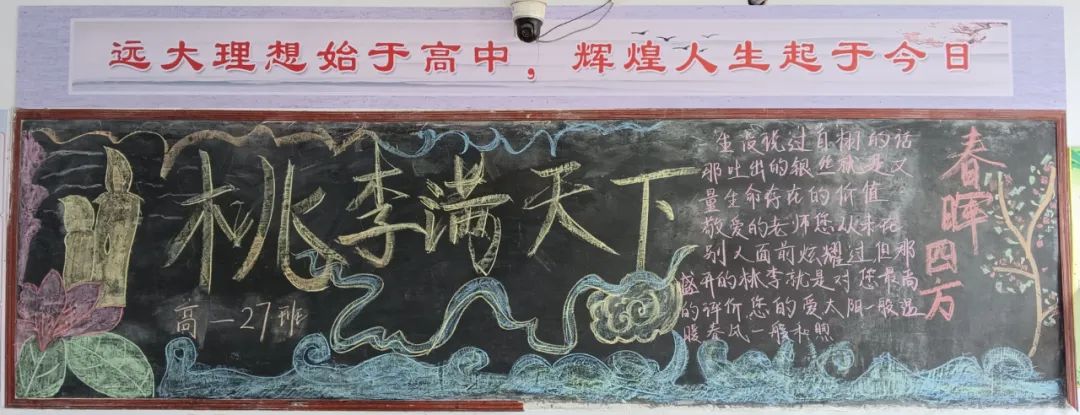 远大理想始于高中，辉煌人生起于今日
桃李满天下
高一27班
春晖四方
没说过自栩的话
那吐出的银丝就是丈
量生命存在的价值
敬爱的老师您从未在
别人面前炫耀过但那
盛开的桃李就是对您最高
的评价您的爱太阳一般温
暖春风一般和煦